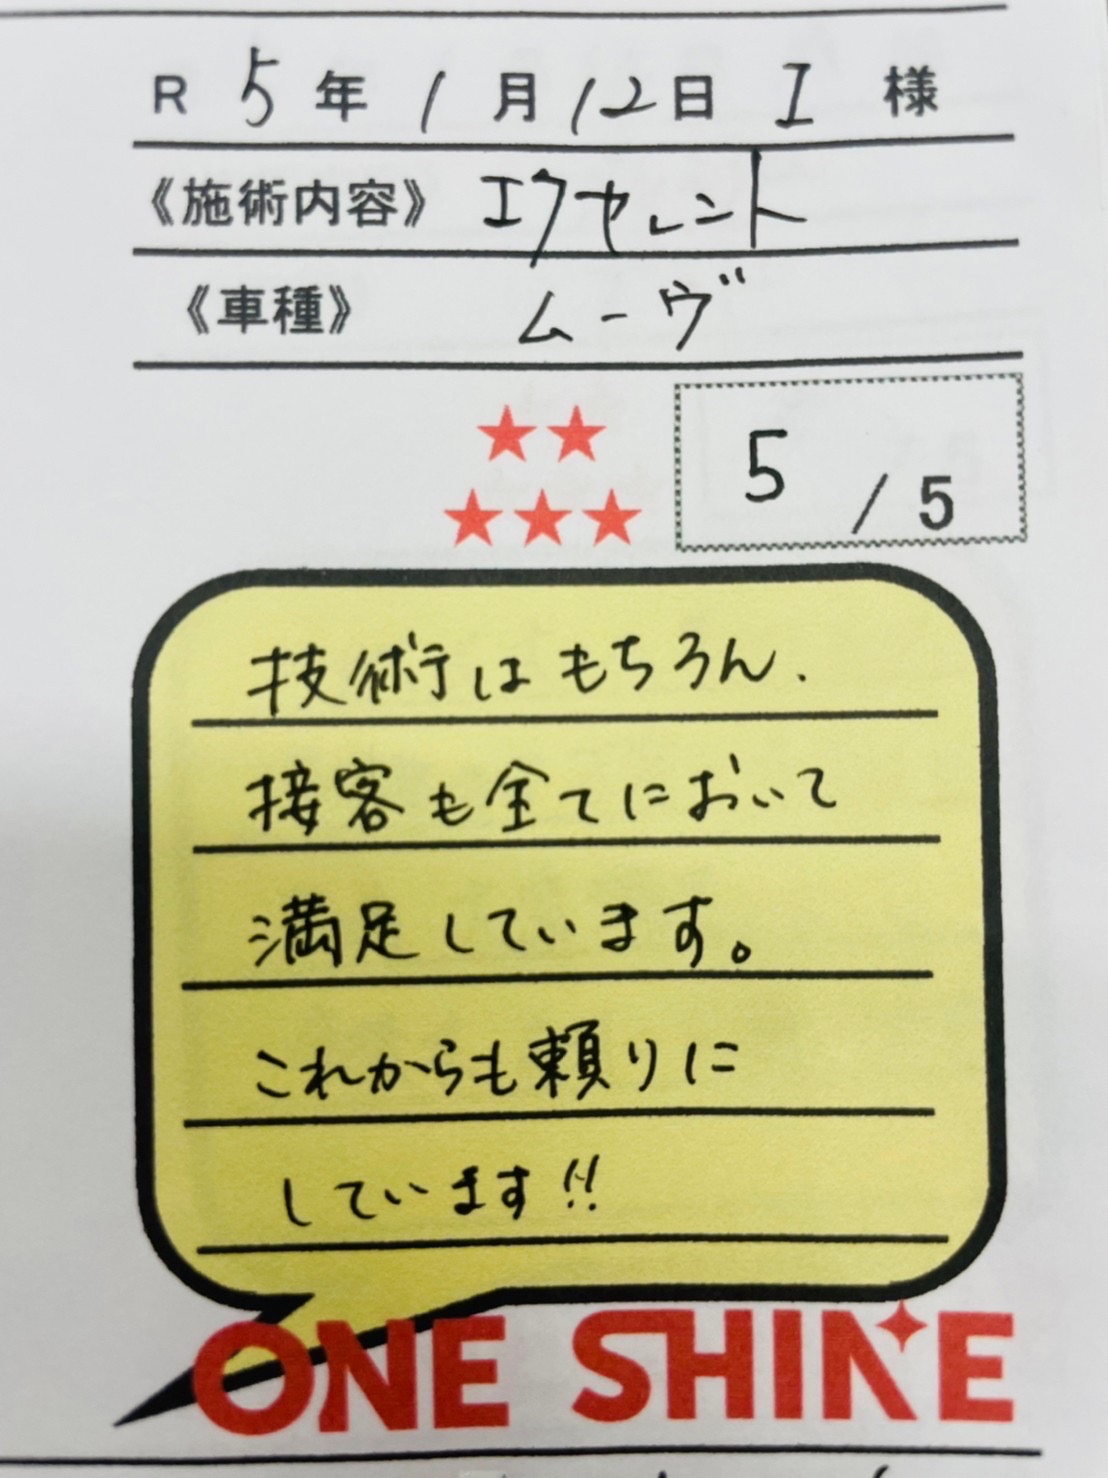 R 5年 1月12日 I 様
《施術内容》 エクセレント
《車種》 ムーヴ
5/5
技術はもちろん、
接客も全てにおいて
満足しています。
これからも頼りに
しています!!
ONE SHINE